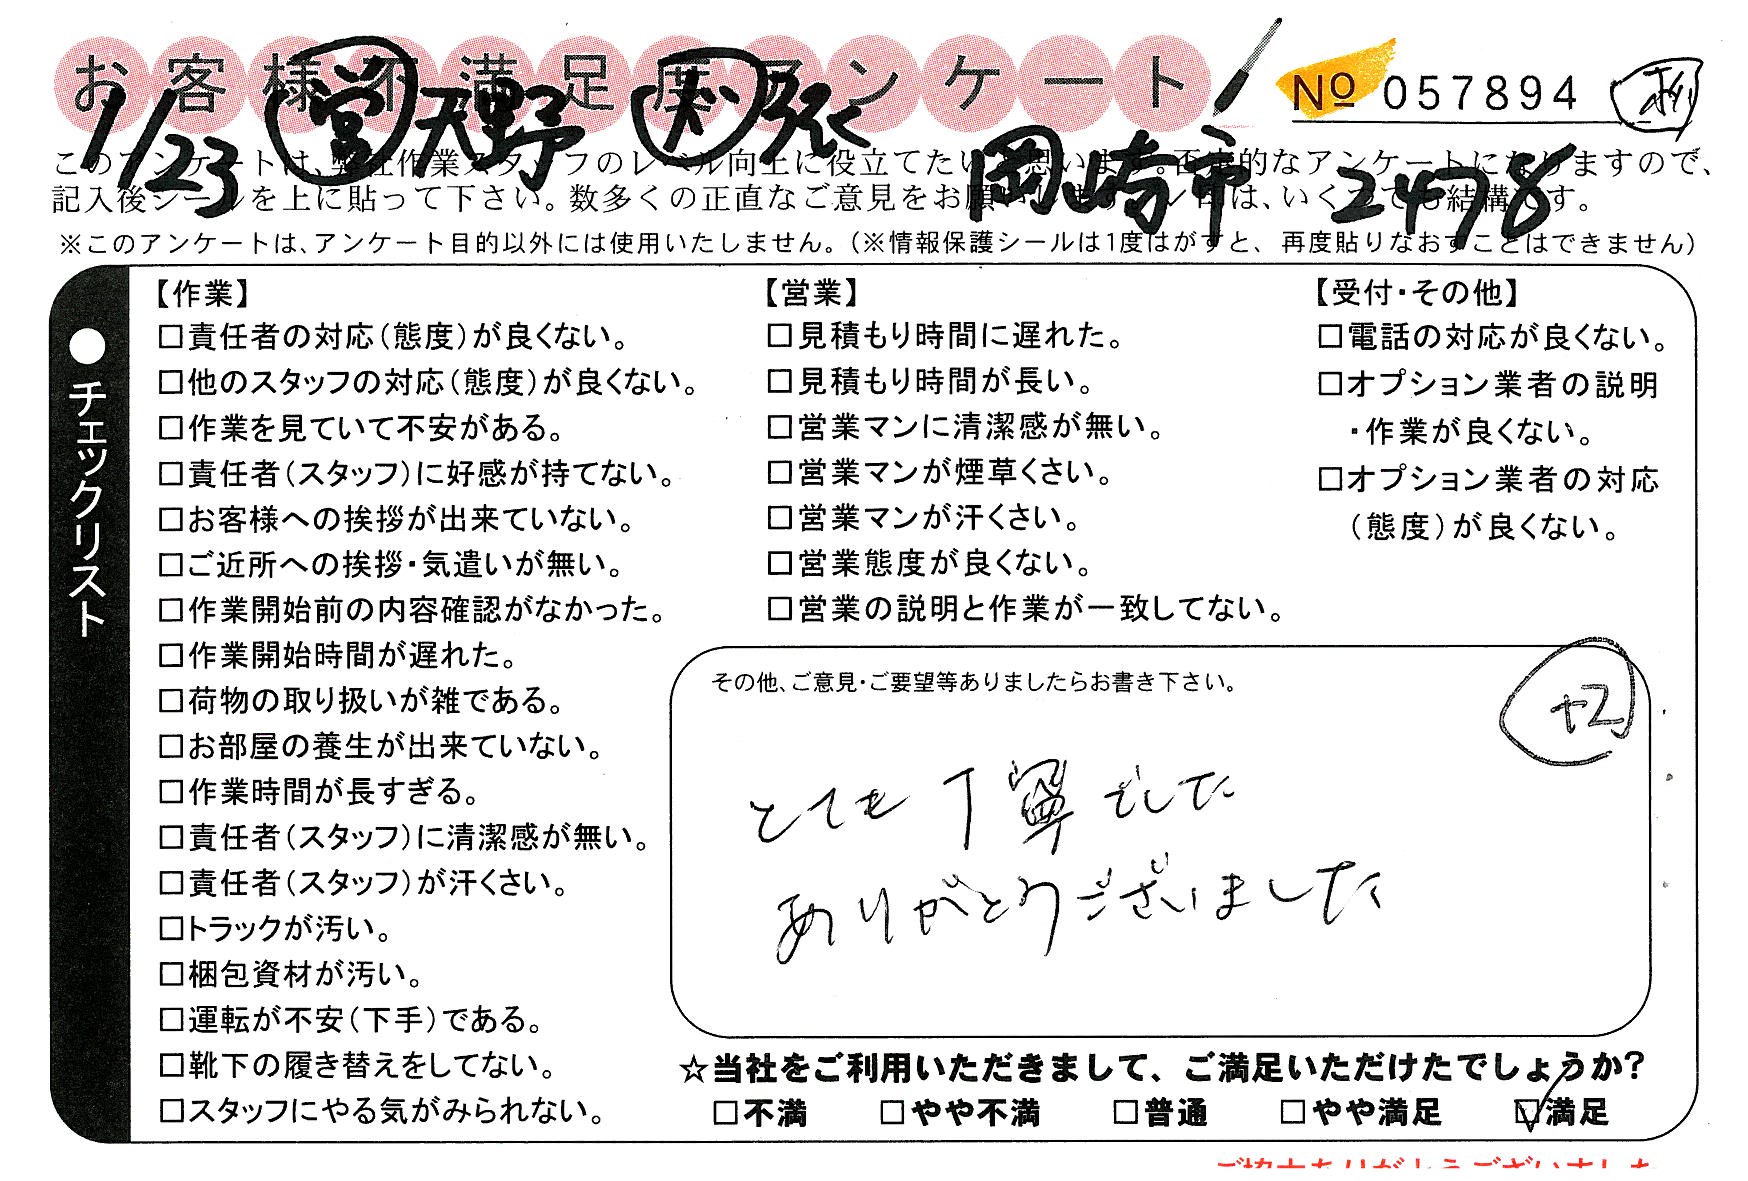 お客様不満足度アンケート
№ 057894
1/23 営 天野 岡崎市 2478
このアンケートは、弊社作業スタッフのレベル向上に役立てたいと思います。否定的なアンケートになりますので、
記入後シールを上に貼って下さい。数多くの正直なご意見をお願いします。レ印は、いくつでも結構です。
※このアンケートは、アンケート目的以外には使用いたしません。（※情報保護シールは1度はがすと、再度貼りなおすことはできません）
●チェックリスト
【作業】
□責任者の対応（態度）が良くない。
□他のスタッフの対応（態度）が良くない。
□作業を見ていて不安がある。
□責任者（スタッフ）に好感が持てない。
□お客様への挨拶が出来ていない。
□ご近所への挨拶・気遣いが無い。
□作業開始前の内容確認がなかった。
□作業開始時間が遅れた。
□荷物の取り扱いが雑である。
□お部屋の養生が出来ていない。
□作業時間が長すぎる。
□責任者（スタッフ）に清潔感が無い。
□責任者（スタッフ）が汗くさい。
□トラックが汚い。
□梱包資材が汚い。
□運転が不安（下手）である。
□靴下の履き替えをしてない。
□スタッフにやる気がみられない。
【営業】
□見積もり時間に遅れた。
□見積もり時間が長い。
□営業マンに清潔感が無い。
□営業マンが煙草くさい。
□営業マンが汗くさい。
□営業態度が良くない。
□営業の説明と作業が一致してない。
【受付・その他】
□電話の対応が良くない。
□オプション業者の説明
・作業が良くない。
□オプション業者の対応
（態度）が良くない。
その他、ご意見・ご要望等ありましたらお書き下さい。
+2
とても丁寧でした
ありがとうございました
☆当社をご利用いただきまして、ご満足いただけたでしょうか？
□不満 □やや不満 □普通 □やや満足 ☑満足
ご協力ありがとうございました